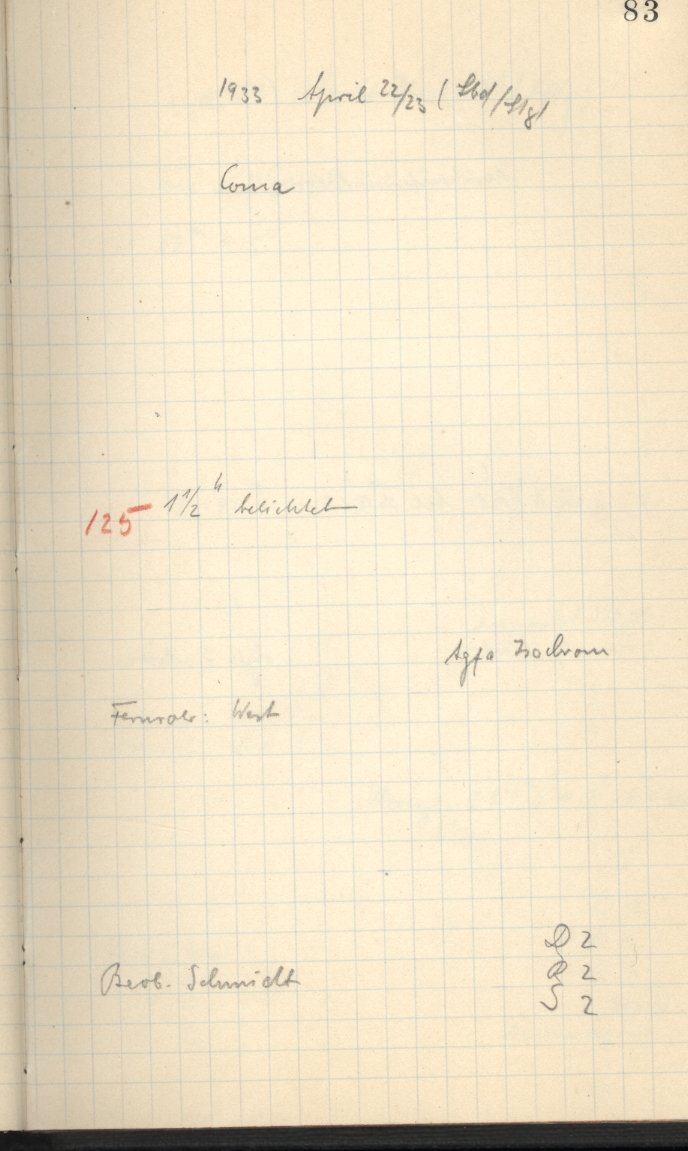 83
1933 April 22/23 (Sbd/Stg)
Coma
125 1 1/2 h belichtet
Agfa Isochrom
Fernrohr: West
D 2
R 2
Beob. Schmidt
S 2